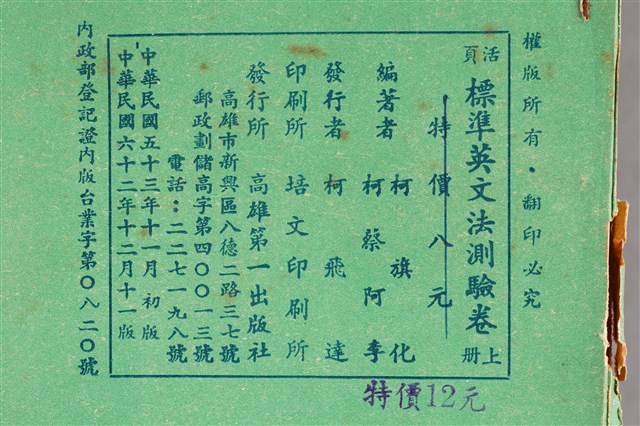 權版所有・翻印必究
活頁 標準英文法測驗卷 上册
特價八元
編著者 柯旗化
柯蔡阿李
發行者 柯飛達
印刷所 培文印刷所
發行所 高雄第一出版社
高雄市新興區八德二路三七號
郵政劃儲高字第四〇〇一三號
電話：二二七一九八號
中華民國五十三年十一月初版
中華民國六十二年十二月十一版
內政部登記證內版台業字第〇八二〇號
特價12元